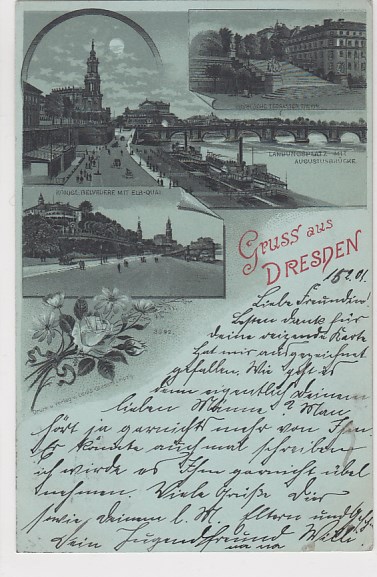 LANDUNGSPLATZ MIT
AUGUSTUSBRÜCKE.
KÖNIGL. BELVEDERE MIT ELB-QUAI.
Gruss aus
DRESDEN
15.2.01.
Liebe Freundin!
Besten Dank für
deine reizende Karte
hat mir ausgezeichnet
gefallen. Wie geht es
denn eigentlich deinem
lieben Männe? Man
hört ja garnichts mehr von Ihm.
Er könnte auch mal schreiben
ich würde es Ihm garnicht übel
nehmen. Viele Grüße Dir
sowie deinem l. M. Eltern und
Dein Jugendfreund Willi.
na na